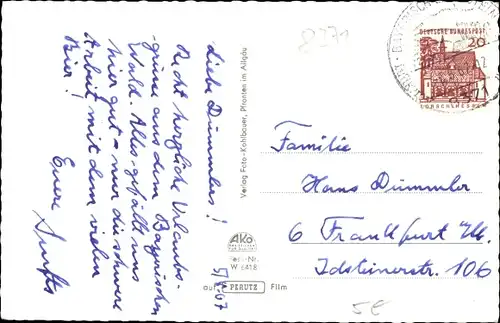 5/7.67
Liebe Dümmlers!
Recht herzliche Urlaubs-
grüsse aus dem Bayrischen
Wald. Alles gefällt uns
hier gut – nur die schwere
Arbeit mit dem vielen
Bier!
Eure
Verlag Foto-Kohlbauer, Pfronten im Allgäu
AKO
Best.-Nr.
W 8418
auf PERUTZ Film
8371
DEUTSCHE BUNDESPOST
20
LORSCH/HESSEN
Familie
Hans Dümmler
6 Frankfurt M.
Idsteinerstr. 106
5€